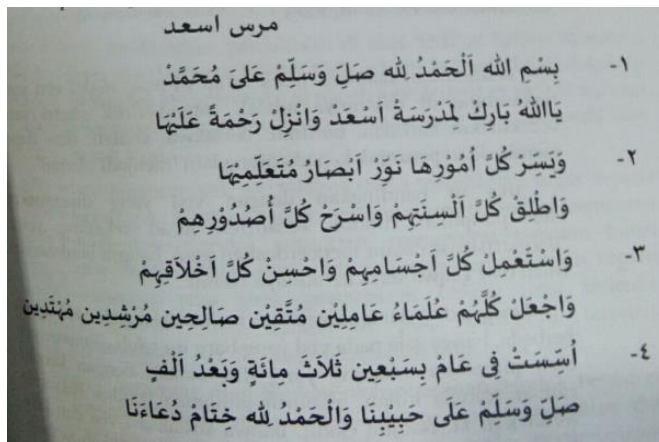 مرس اسعد
١- بِسْمِ الله اَلْحَمْدُ لِله صَلِ وَسَلِّمْ عَلىَ مُحَمَّدْ
يَااللهُ بَارِكْ لِمَدْرَسَةْ اَسْعَدْ وَانْزِلْ رَحْمَةً عَلَيْهَا
٢- وَيَسِّرْ كُلَّ اُمُوْرِهَا نَوِّرْ اَبْصَارُ مُتَعَلِّمِيْهَا
وَاطْلِقْ كُلَّ اَلْسِنَتِهِمْ وَاسْرَحْ كُلَّ أُصْدُوْرِهِمْ
٣- وَاسْتَعْمِلْ كُلَّ اَجْسَامِهِمْ وَاحْسِنْ كُلَّ اَخْلَاقِهِمْ
وَاجْعَلْ كُلَّهُمْ عُلَمَاءُ عَامِلِيْنَ مُتَّقِيْنْ صَالِحِيِن مُرْشِدِين مُهْتَدِين
٤- أُسِّسَتْ فِى عَامْ بِسَبْعِين ثَلَاثَ مِائَةٍ وَبَعْدُ اَلْفٍ
صَلِّ وَسَلِّمْ عَلَى حَبِيْبِنَا وَالْحَمْدُ لِله خِتَامْ دُعَاءَنَا